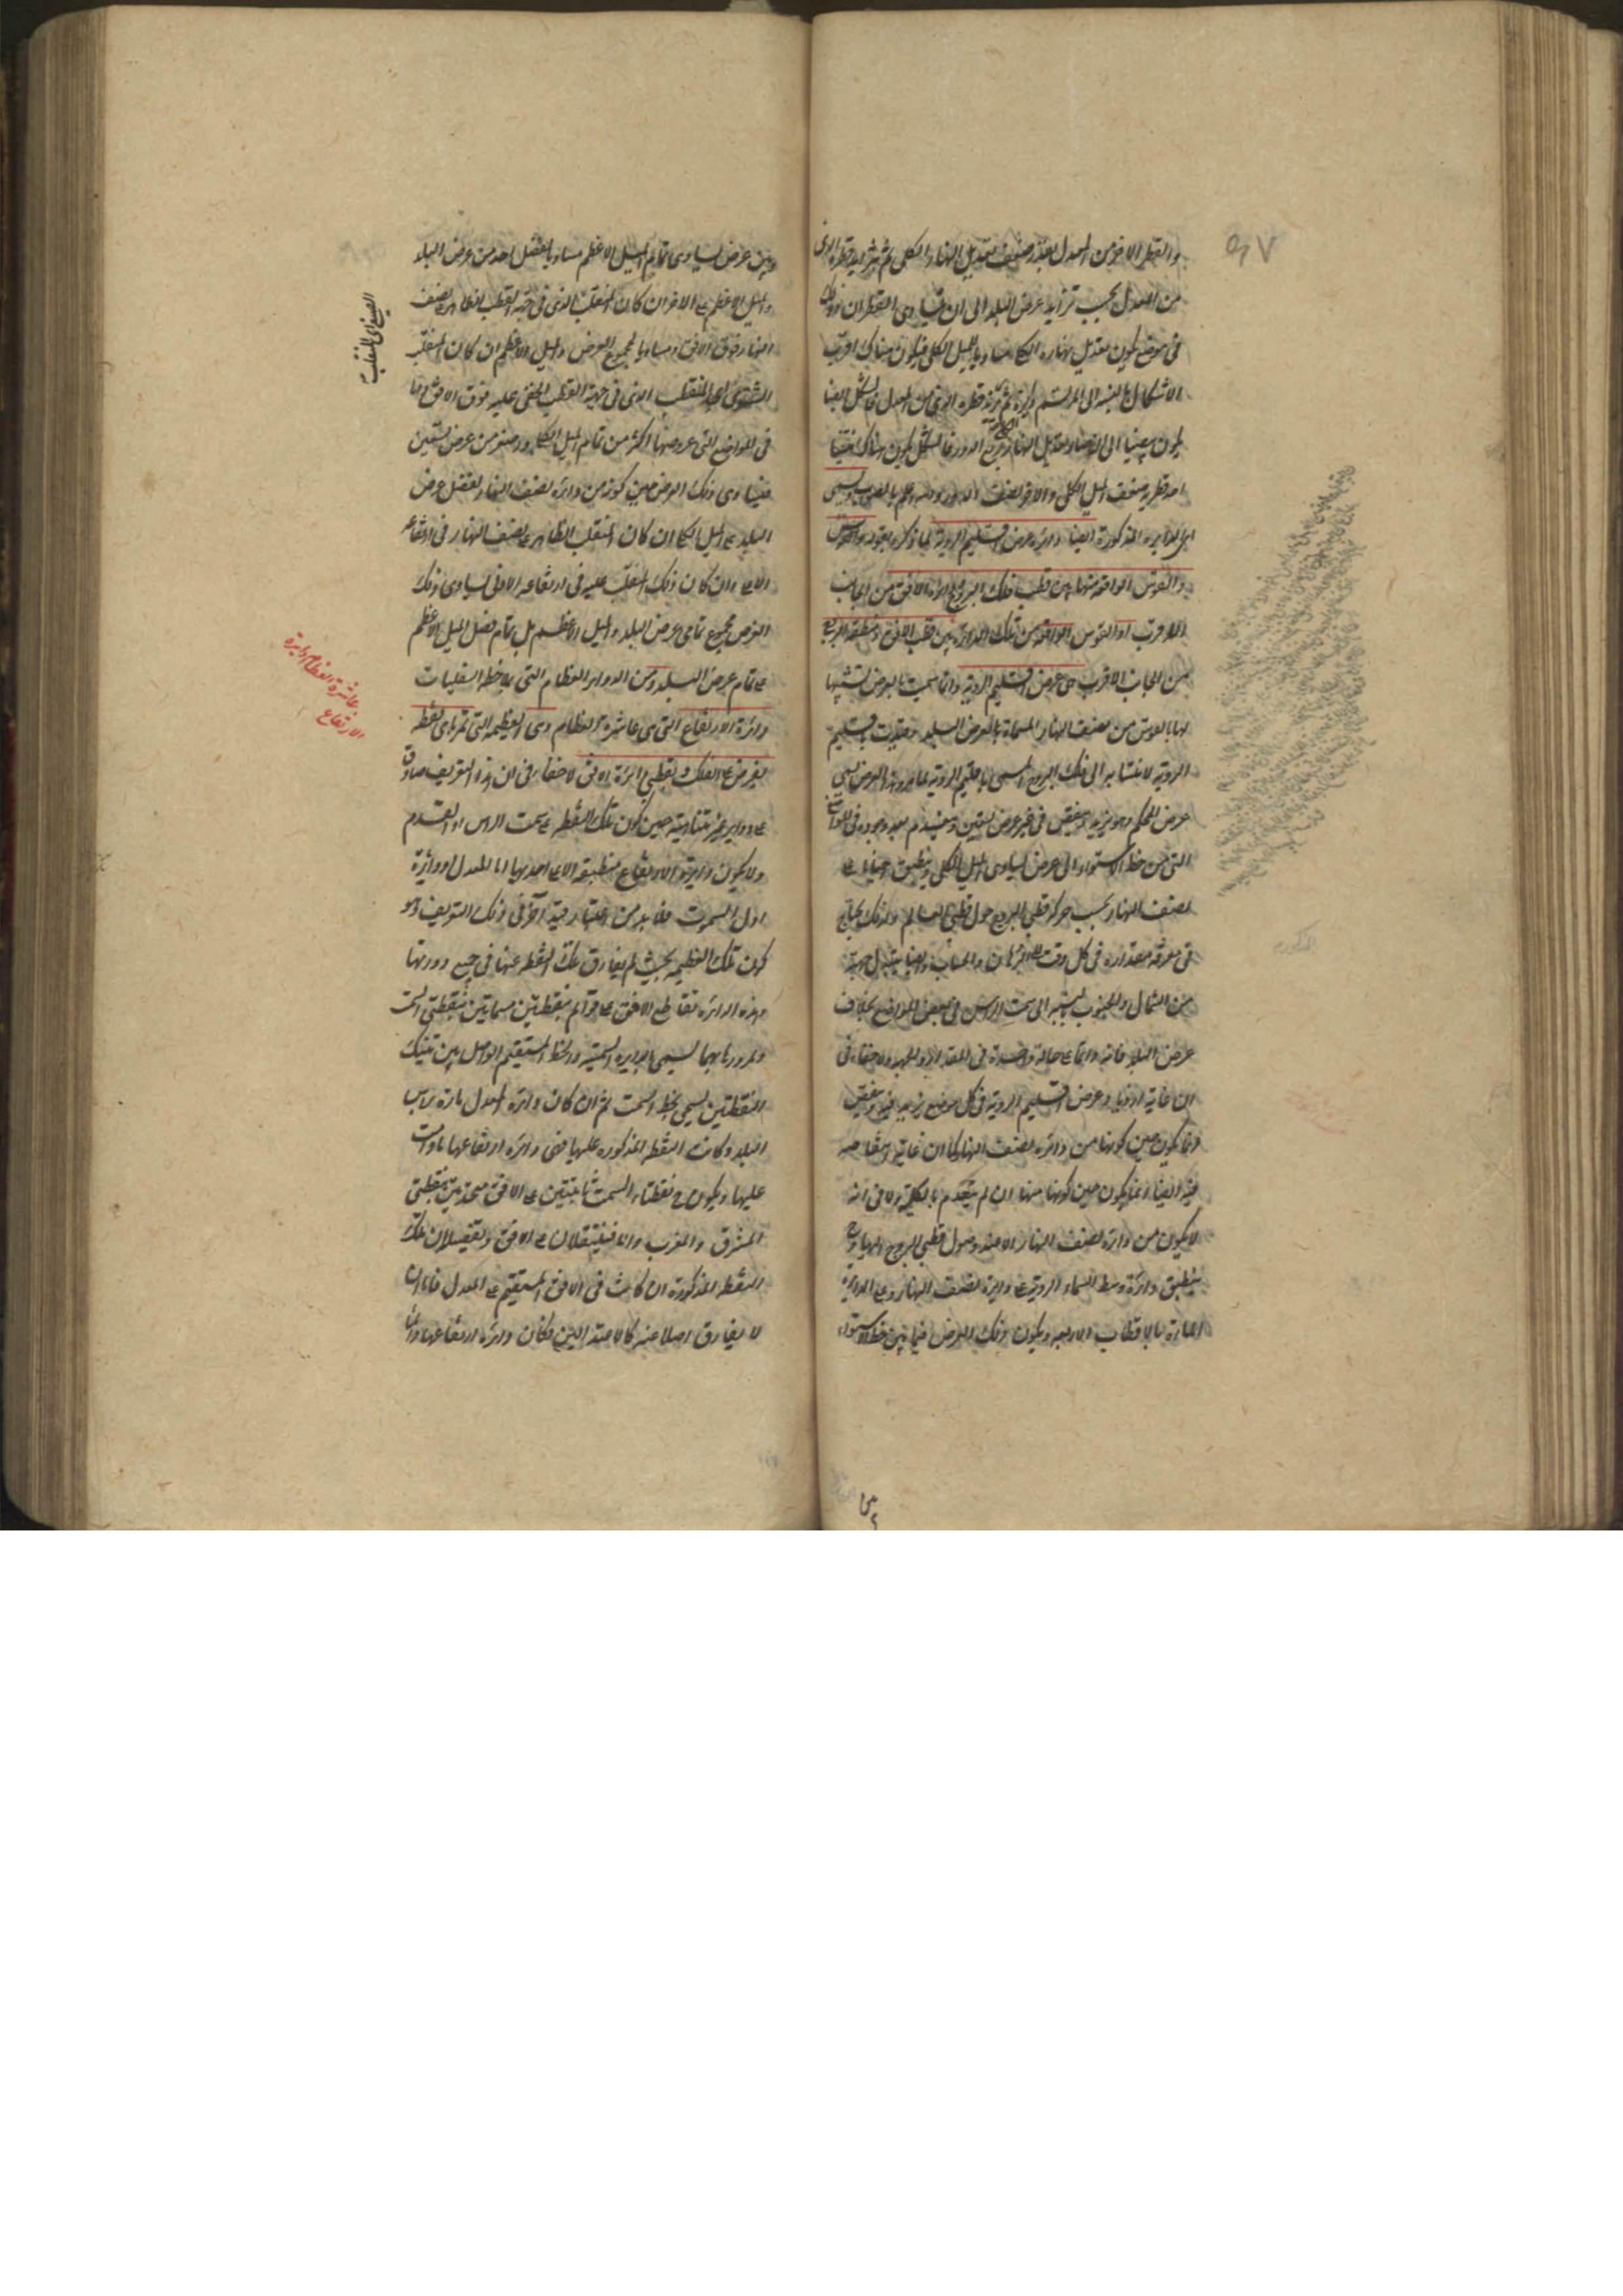 والقطر الاخر من المعدل بقدر ضعف تعديل النهار الكلى ثم يتزايد قطره الذى
من المعدل بحسب تزايد عرض البلد الى ان يتساوى القطران وذلك
فى موضع يكون تعديل نهاره الكلى مساويا للميل الكلى فيكون هناك اقرب
الاشكال بالنسبة الى المرتسم دائرة ثم يزيد قطره الذى من المعدل فالشكل ايضا
يكون بيضيا الى ان يصير تعديل النهار ربع الدور فالشكل يكون هناك
احد قطريه ضعف الميل الكلى والاخر نصف الدور وسمى
اى الدايرة المذكورة ايضا دائرة عرض اقليم الرؤية لما ذكره بقوله والقوس
والقوس الواقعة منها بين قطب فلك البروج ودائرة الافق من الجانب
الاقرب او القوس الواقعة من تلك الدائرة بين قطب الافق ومنطقة البروج
من الجانب الاقرب هى عرض اقليم الرؤية وانما سميت بالعرض لتشبيهها
لها بالقوس من نصف النهار المسماة بالعرض البلد وقيدت باقليم
الرؤية لانتسابه الى فلك البروج المسمى باقليم الرؤية وهذا العرض يسمى
عرض المحكم وهو يزيد وينقص فى غير عرض تسعين وينعدم بعد وجوده فى المواضع
التى من خط الاستواء الى عرض يساوى الميل الكلى وينطبق احيانا على
نصف النهار بحسب حركة قطبى البروج حول قطبى العالم ولذلك يحتاج
فى معرفة مقداره فى كل وقت الى البرهان والحساب وايضا يتبدل جهته
من الشمال والجنوب بالنسبة الى سمت الراس فى بعض المواضع بخلاف
عرض البلد فانه دائما على حالة واحدة فى المقدار والجهة ولا خفاء فى
ان غاية ازدياد عرض اقليم الرؤية فى كل موضع يزيد فيه وينقص
انما يكون حين كونها من دائرة نصف النهار كما ان غاية انتقاصه
فيه ايضا انما يكون حين كونها منها ان لم ينعدم بالكلية ولا فى انه
لا يكون من دائرة نصف النهار الا عند وصول قطبى البروج اليها وح
ينطبق دائرة وسط السماء الرؤية على دائرة نصف النهار وعلى الدائرة
المارة بالاقطاب الاربعة ويكون ذلك العرض فيما بين خط الاستواء
وبين عرض يساوى تمام الميل الاعظم مساويا لفضل احد من عرض البلد
والميل الاعظم على الاخر ان كان المنقلب الذى فى جهة القطب الظاهر نصف
النهار فوق الافق ومساويا لمجموع العرض والميل الاعظم ان كان المنقلب
الشتوى اى المنقلب الذى فى جهة القطب الخفى عليه فوق الافق اما
فى المواضع التى عروضها اكثر من تمام الميل الكلى واصغر من عرض تسعين
فيساوى ذلك العرض حين كونه من دائرة نصف النهار لفضل عرض
البلد على الميل الكلى ان كان المنقلب الظاهر على نصف النهار فى ارتفاعه
الاعلى وان كان ذلك المنقلب عليه فى ارتفاعه الادنى يساوى ذلك
العرض مجموع تمامى عرض البلد والميل الاعظم بل تمام فضل الميل الاعظم
على تمام عرض البلد ومن الدوائر العظام التى بملاحظة السفليات
دائرة الارتفاع التى هى عاشرة العظام وهى العظيمة التى تمر باى نقطة
يفرض على الفلك وبقطبى دائرة الافق لا خفاء فى ان هذا التعريف صادق
على دواير غير متناهية حين كون تلك النقطة على سمت الراس او القدم
ولا يكون دائرة الارتفاع منطبقة الا على احديها اما المعدل او دائرة
اول السموت فلا بد من اعتبار قيد آخر فى ذلك التعريف وهو
كون تلك العظيمة بحيث لم يفارق تلك النقطة عنها فى جميع دورتها
وهذه الدائرة تقاطع الافق على قوائم بنقطتين مسماتين بنقطتى السمت
ولمرورها بهما يسمى بالدايرة السمتية والخط المستقيم الواصل بين تينك
النقطتين يسمى بخط السمت ثم ان كان دائرة المعدل مارة براس
البلد وكانت النقطة المذكورة عليها فهى دائرة ارتفاعها مادامت
عليها ويكون ح نقطتا السمت ثابتتين على الافق متحدتين بنقطتى
المشرق والمغرب والا فينتقلان على الافق وتفصيله ان تلك
النقطة المذكورة ان كانت فى الافق المستقيم على المعدل فاما ان
لا يفارق اصلا عنه كالاعتدالين فكان دائرة ارتفاعها دائما
الصيفى اى المنقلب
عاشرة العظام دايرة
الارتفاع